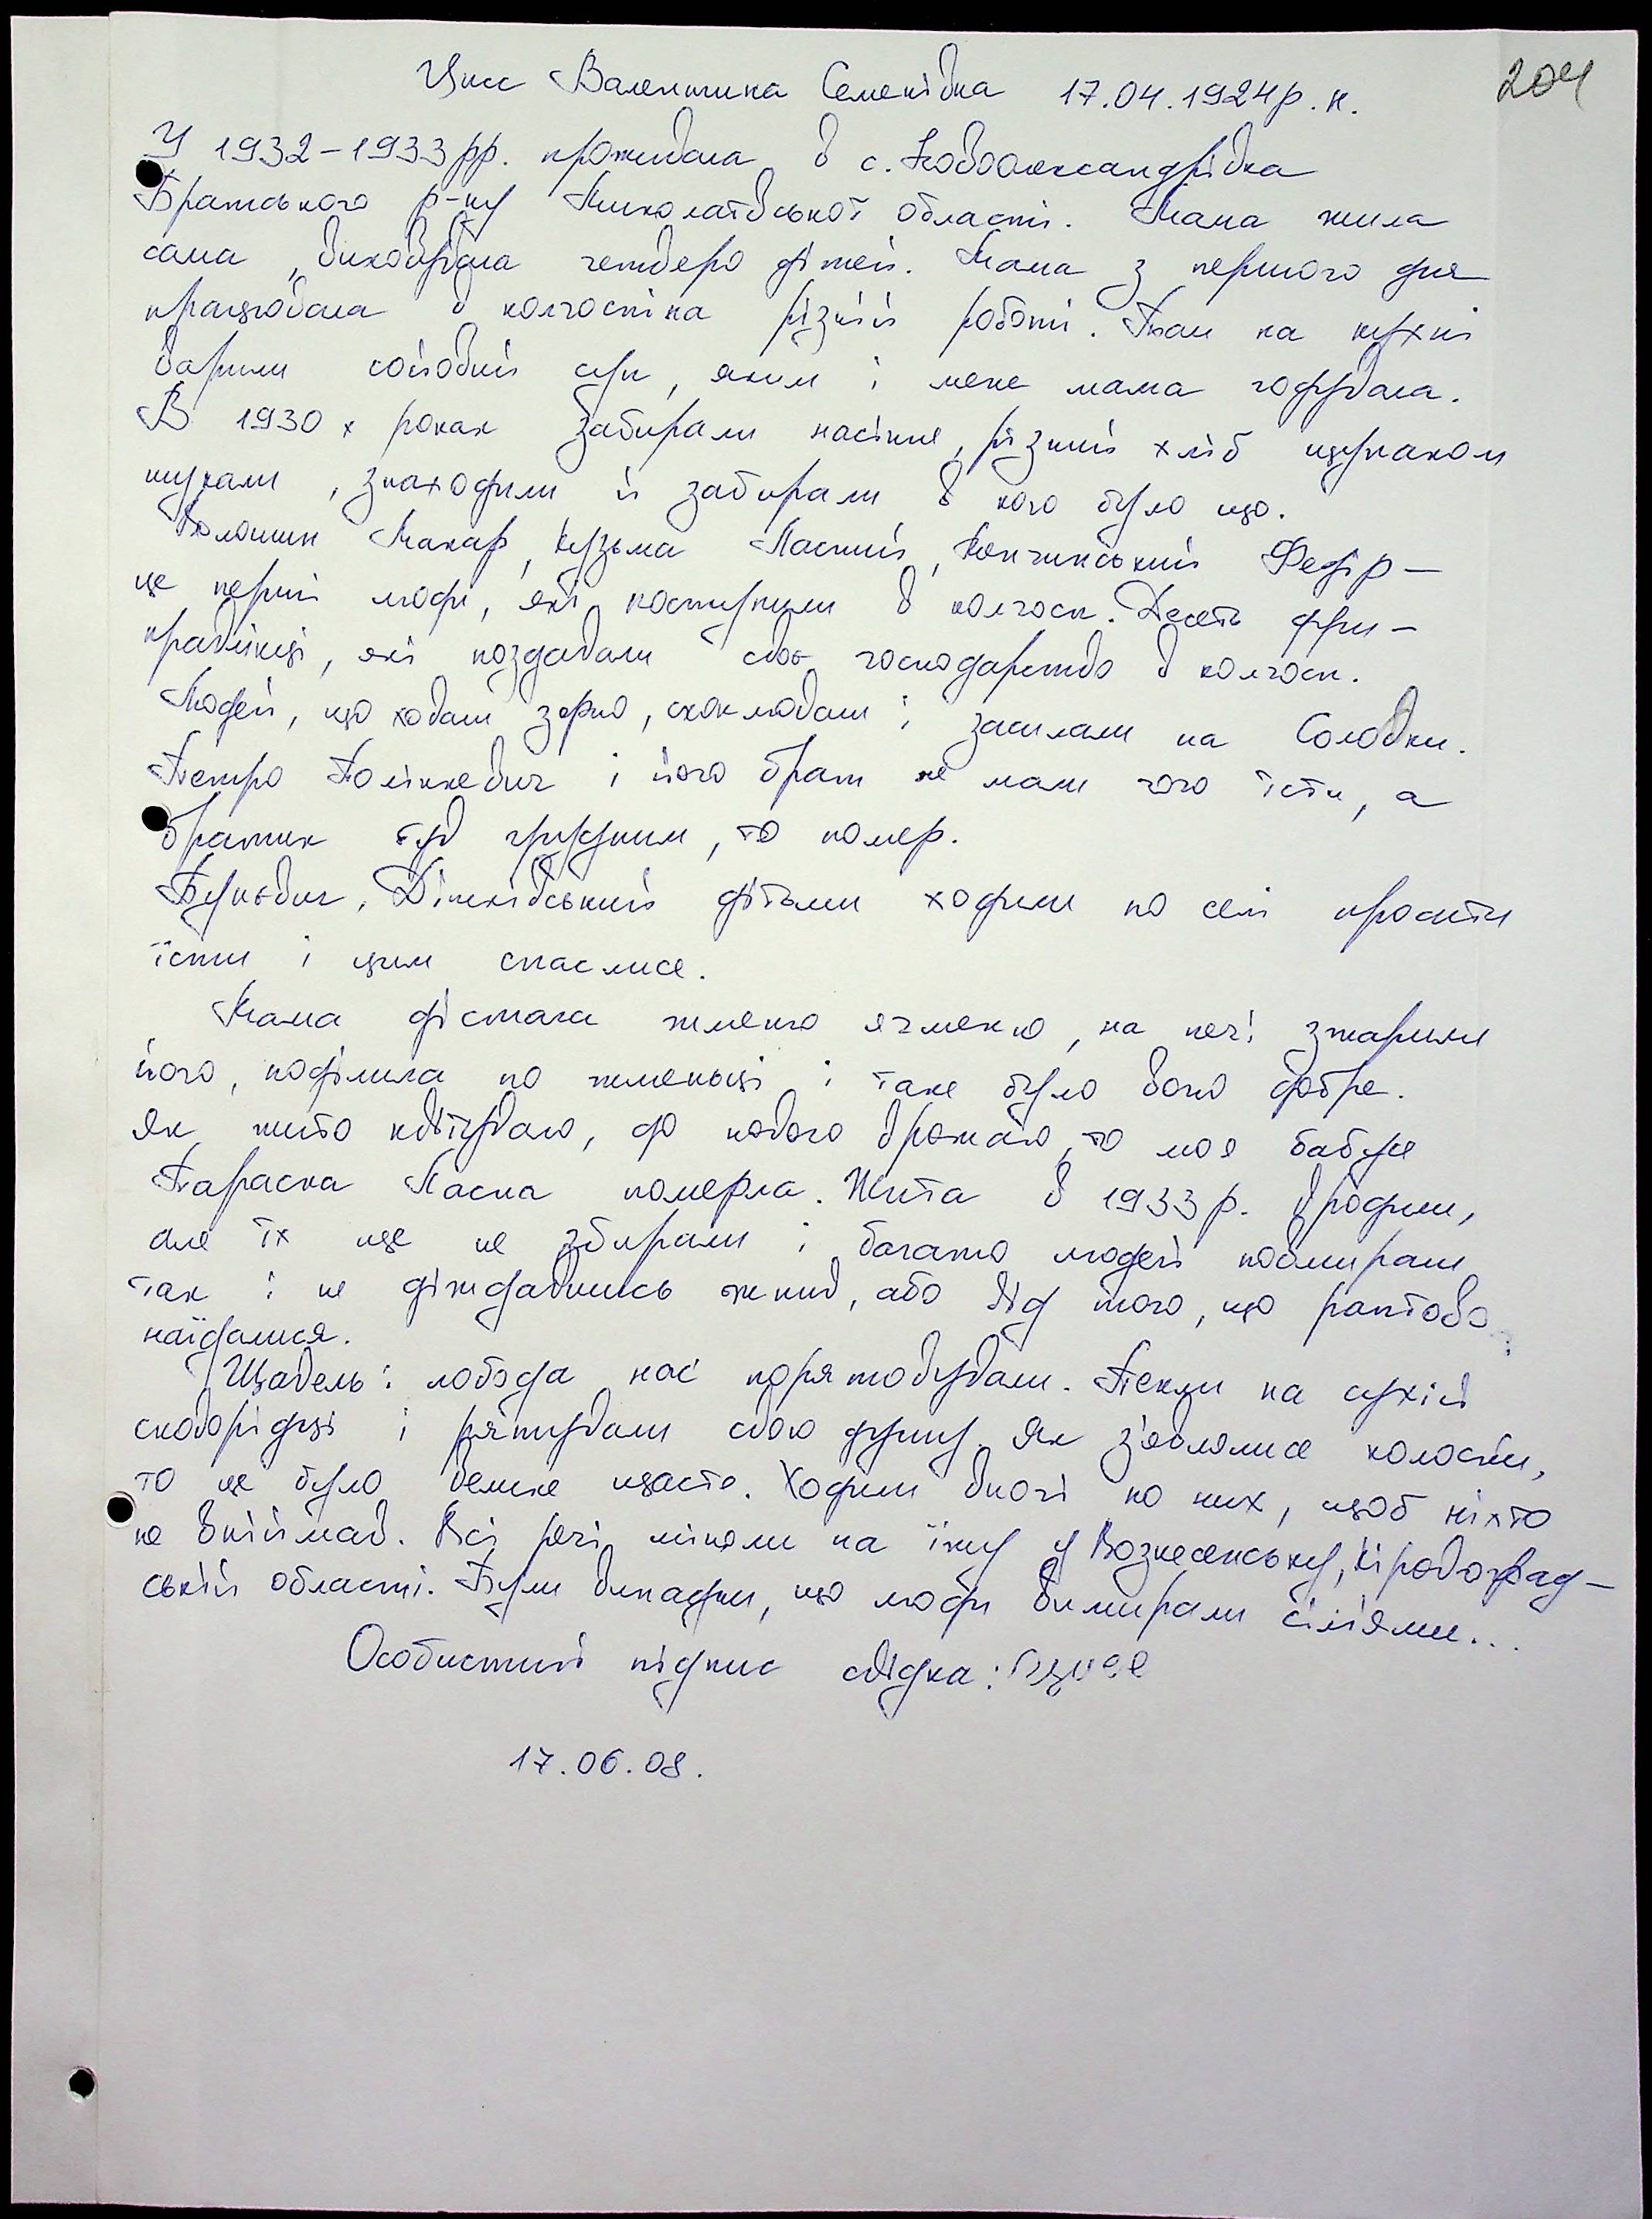 204
Цисс Валентина Семенівна 17.04.1924р.н.
У 1932-1933рр. проживала в с. Новоолександрівка
Братського р-ну Миколаївської області. Мама жила
сама, виховувала четверо дітей. Мама з першого дня
працювала в колгоспі на різній роботі. Там на кухні
варили соєвий суп, яким і мене мама годувала.
В 1930 х роках забирали насіння, різний хліб щупаком
шукали, знаходили й забирали в кого було що.
Волошин Макар, Кузьма Ласий, Кончинський Федір -
це перші люди, які поступили в колгосп. Десять дни -
правлінці, які поздавали своє господарство в колгосп.
Людей, що ховали зерно, охоклювали і засилали на Соловки.
Петро Полінкевич і його брат не мали чого їсти, а
братик був грудним, то помер.
Вітківський дітьми ходили по селі просити
їсти і цим спаслися.
Мама дістала жменю ячменю, на печі зжарили
його, поділила по жменьці і таке було воно добре.
Як жито квітувало, до нового врожаю, то моя бабуся
Параска Ласа померла. Жита в 1933р. вродили,
але їх ще не збирали і багато людей повмирали
так і не діждавшись жнив, або від того, що раптово
наїдалися.
Щавель і лобода нас порятовували. Пекли на сухій
сковорідці і рятували свою душу. Як з'являлися колоски,
то це було велике щастя. Ходили вночі по них, щоб ніхто
не впіймав. Всі речі міняли на їжу у Вознесенську, Кіровоград-
ській області. Були випадки, що люди вимирали сім'ями...
Особистий підпис свідка:
17.06.08.